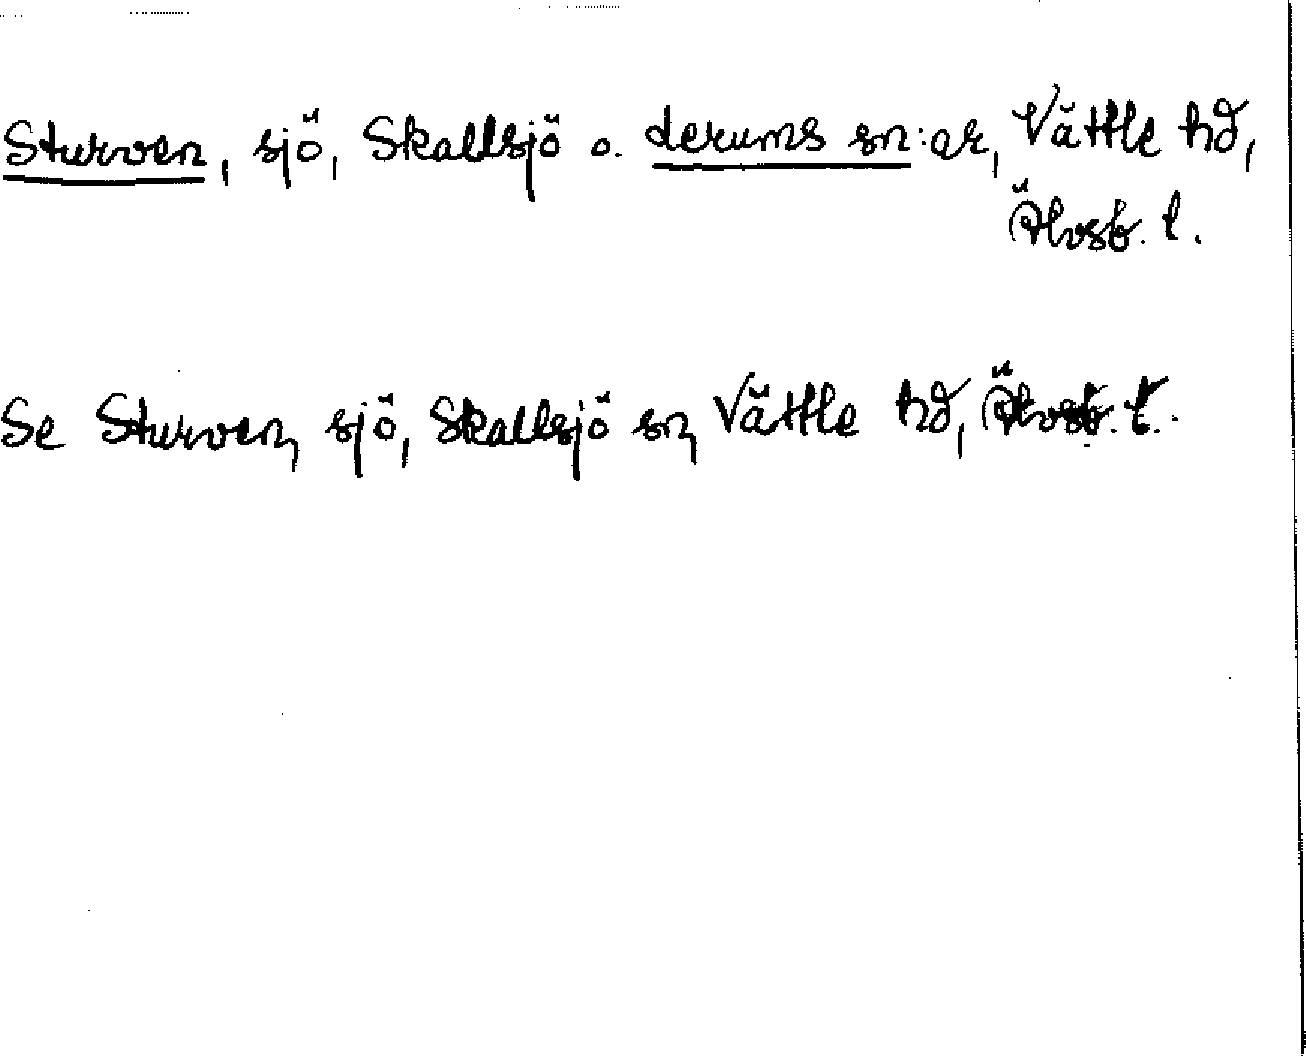 Sturven, sjö, Skallsjö o. Lerums sn:ar, Vättle hd,
Älvsb. l.
Se Sturven, sjö, Skallsjö sn, Vättle hd, Älvsb. l.